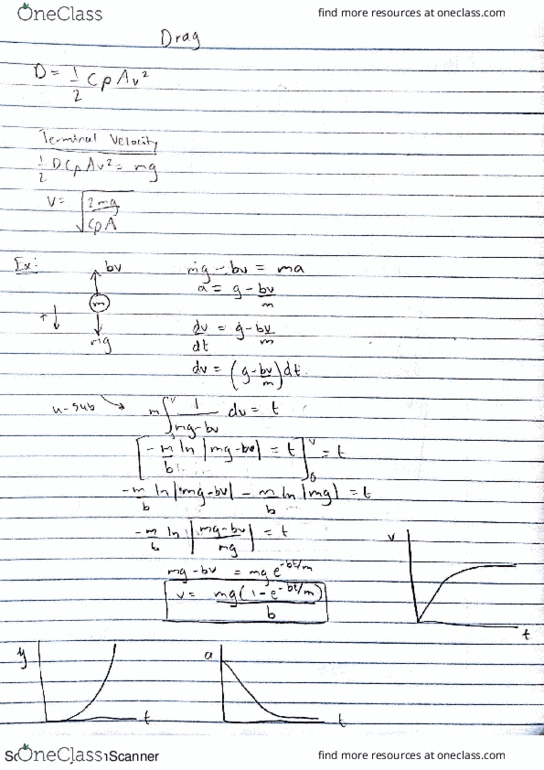 OneClass
find more resources at oneclass.com
Drag
D = 1/2 CρAv²
Terminal Velocity
1/2 DCρAv² = mg
v = √(2mg/CρA)
Ex:
bv
m
+↓
mg
mg - bv = ma
a = g - bv/m
dv/dt = g - bv/m
dv = (g - bv/m)dt
u-sub → m∫₀ᵛ 1/(mg-bv) dv = t
[-m/b ln|mg-bv| = t]₀ᵛ = t
-m/b ln|mg-bv| - m/b ln|mg| = t
-m/b ln|(mg-bv)/mg| = t
mg-bv = mg e^(-bt/m)
v = mg(1-e^(-bt/m))/b
v
t
y
t
a
t
OneClass
Scanner
find more resources at oneclass.com